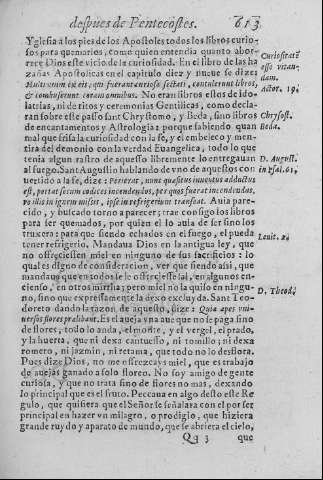 despues de Pentecostes. 613
Yglesia a los pies de los Apostoles todos los libros curio-
sos para quemarlos, como quien entendia quanto abor-
rece Dios este vicio de la curiosidad. En el libro de las ha
zañas Apostolicas en el capitulo diez y nueue se dize:
Multi autem ex eis, qui fuerant curiosa sectati, contulerunt libros,
& combusserunt coram omnibus. No eran libros estos de ido-
latrias, ni de ritos y ceremonias Gentilicas, como decla-
ran sobre este passo sant Chrysostomo, y Beda, sino libros
de encantamentos y Astrologia: porque sabiendo quan
mal que frisa la curiosidad con la fe, y el embeleco y men-
tira del demonio con la verdad Euangelica, todo lo que
tenia algun rastro de aquesso libremente lo entregauan
al fuego. Sant Augustin hablando de vno de aquestos con
uertido a la fe, dize: Perierat, nunc quæsitus inuentus adductus
est, portat secum codices incendendos, per quos fuerat incendendus,
vt illis in ignem missis, ipse in refrigerium transeat. Auia pare-
cido, y buscado torno a parecer; trae consigo los libros
para ser quemados, por quien el lo auia de ser sino los
truxera: para que siendo echados en el fuego, el pueda
tener refrigerio. Mandaua Dios en la antigua ley, que
no ofreciessen miel en ninguno de sus sacrificios: lo
qual es digno de consideracion, ver que siendo assi, que
mandaua que en todos se le ofreciesse sal, en algunos en-
cienso, en otros mirrha; pero miel no la quiso en ningu-
no, sino que expressamente la dexo excluyda. Sant Teo-
doreto dando la razon de aquesto, dize: Quia apes vni-
uersos flores prælibant. Es el aueja vna aue que no se paga sino
de flores; todo lo anda, el monte, y el vergel, el prado,
y la huerta, que ni dexa cantuesso, ni tomillo; ni dexa
romero, ni jazmin, ni retama, que todo no lo desflora.
Pues dize Dios, no me ofrezcays miel, que es trabajo
de auejas ganado a solo floreo. No soy amigo de gente
curiosa, y que no trata sino de flores no mas, dexando
lo principal que es el fruto. Peccaua en algo desto este Re
gulo, que quisiera que el Señor se señalara con el por ser
principal en hazer vn milagro, o prodigio, que hiziera
grande ruydo y aparato de mundo, que se abriera el cielo,
Qq 3 que
Curiositatẽ
esse vitan-
dam.
Actor. 19.
Chrysost.
Beda.
D. August.
in Psal. 61.
Leuit. 2.
D. Theod.